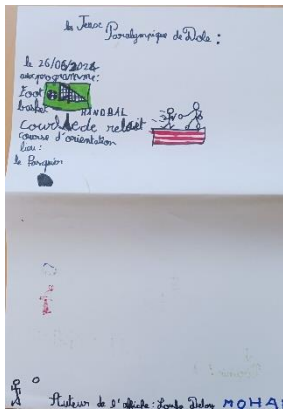 les Jeux Paralympique de Dole :
le 26/06/2024
au programme:
Foot
basket HANDBAL
course de relait
course d'orientation
lieu:
le Pasquier
Auteur de l'affiche: Delon MOHA